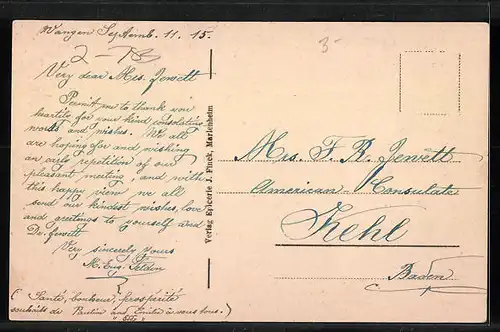 Wangen Septemb. 11. 15.
2-
3-
Very dear Mrs. Jewett
Permit me to thank you
heartily for your kind consolating
words and wishes. We all
are hoping for and wishing
an early repetition of our
pleasant meeting, and with
this happy view we all
send our kindest wishes, love
and greetings to yourself and
Dr. Jewett
Very sincerely yours
M. Eug.
(Santé, bonheur, prospérité
souhaits de Pauline and Emilie à vous tous.)
Verlag Epicerie J. Finck, Marlenheim
Mrs. F. B. Jewett
American Consulate
Kehl
Baden